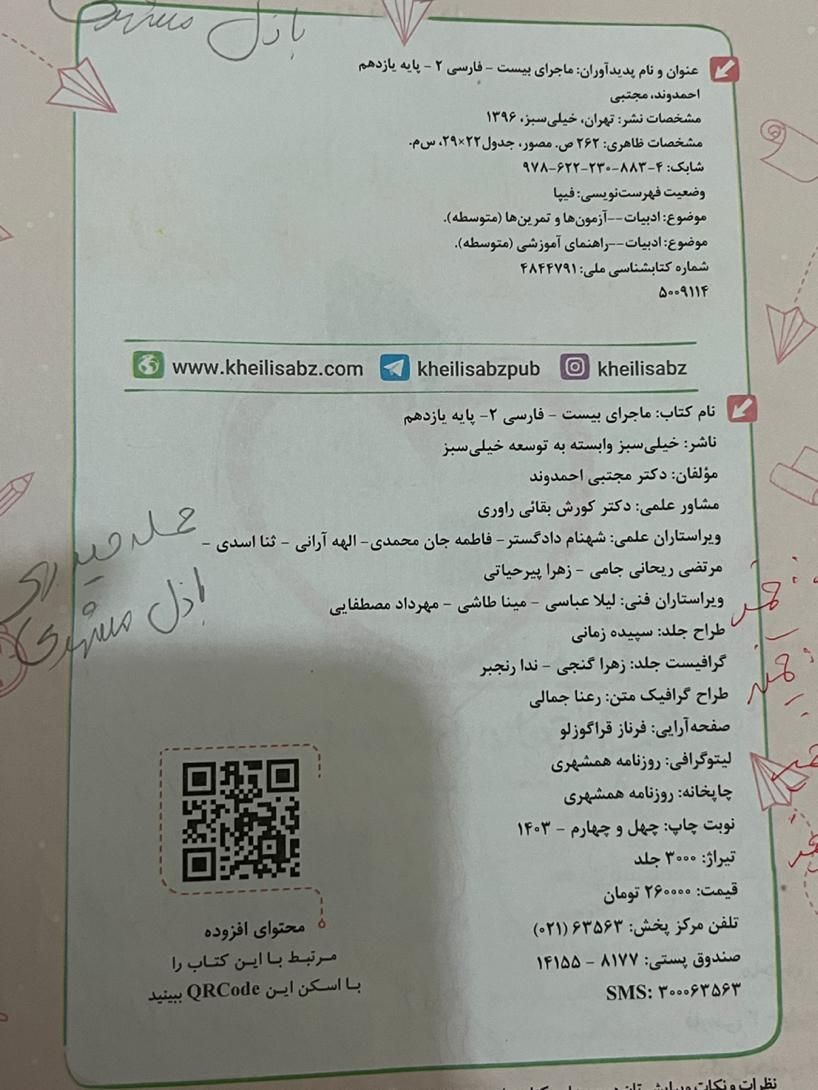 باذل
عنوان و نام پدیدآوران: ماجرای بیست - فارسی ۲ - پایه یازدهم
احمدوند، مجتبی
مشخصات نشر: تهران، خیلی‌سبز، ۱۳۹۶
مشخصات ظاهری: ۲۶۲ ص. مصور، جدول ۲۲×۲۹، س‌م.
شابک: ۴-۸۸۳-۲۳۰-۶۲۲-۹۷۸
وضعیت فهرست‌نویسی: فیپا
موضوع: ادبیات--آزمون‌ها و تمرین‌ها (متوسطه).
موضوع: ادبیات--راهنمای آموزشی (متوسطه).
شماره کتابشناسی ملی: ۴۸۴۴۷۹۱
۵۰۰۹۱۱۴
www.kheilisabz.com kheilisabzpub kheilisabz
نام کتاب: ماجرای بیست - فارسی ۲- پایه یازدهم
ناشر: خیلی‌سبز وابسته به توسعه خیلی‌سبز
مؤلفان: دکتر مجتبی احمدوند
مشاور علمی: دکتر کورش بقائی راوری
ویراستاران علمی: شهنام دادگستر - فاطمه جان محمدی- الهه آرانی - ثنا اسدی -
مرتضی ریحانی جامی - زهرا پیرحیاتی
ویراستاران فنی: لیلا عباسی - مینا طاشی - مهرداد مصطفایی
طراح جلد: سپیده زمانی
گرافیست جلد: زهرا گنجی - ندا رنجبر
طراح گرافیک متن: رعنا جمالی
صفحه‌آرایی: فرناز قراگوزلو
لیتوگرافی: روزنامه همشهری
چاپخانه: روزنامه همشهری
نوبت چاپ: چهل و چهارم - ۱۴۰۳
تیراژ: ۳۰۰۰ جلد
قیمت: ۲۶۰۰۰۰ تومان
تلفن مرکز پخش: ۶۳۵۶۳ (۰۲۱)
صندوق پستی: ۸۱۷۷ - ۱۴۱۵۵
SMS: ۳۰۰۰۶۳۵۶۳
حمله حیدری
باذل مشهدی
محتوای افزوده
مرتبط با این کتاب را
با اسکن این QRCode ببینید